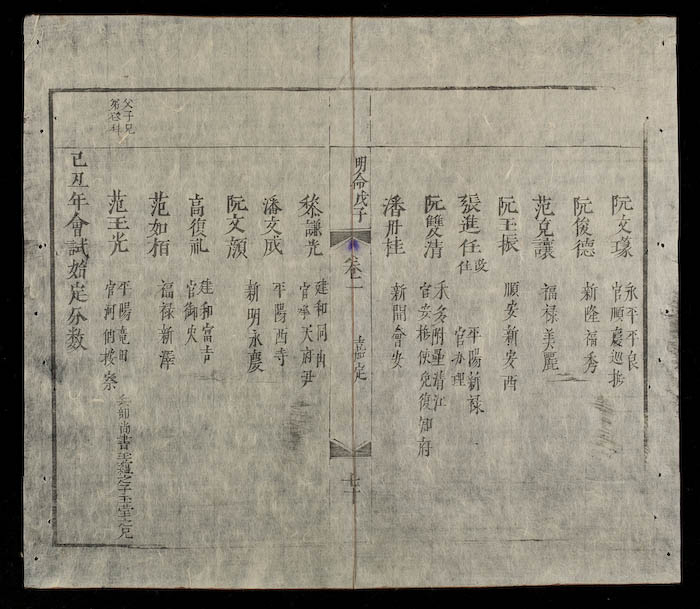 阮文瑑 永平平良
官順慶巡撫
阮俊德 新隆福秀
范克讓 福祿美麗
阮玉振 順安新安酉
張進任 改仕 平陽新祿
官办理
阮雙清 承安附壘清江
官安撫使免復知府
潘丹桂 新開會安
明命戊子
卷一
嘉定
七十
黎謙光 建和同由
官承天府尹
潘文成 平陽西寺
阮文顏 新明永慶
高復礼 建和富吉
官御史
范如栢 福祿新澤
范玉光 平陽竜田
官河伯按察
父子兄
弟登科
己丑年會試始定分数